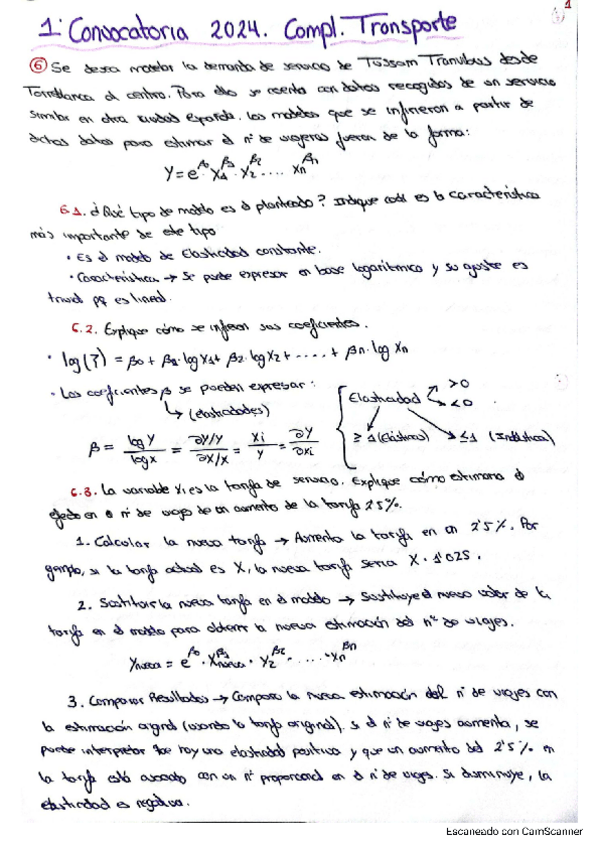 1
1ª Convocatoria 2024. Compl. Transporte
⑥ Se desea modelar la demanda de servicio de Tussam Tranvibus desde
Torreblanca al centro. Para ello se cuenta con datos recogidos de un servicio
similar en otra ciudad española. Los modelos que se infirieron a partir de
dichos datos para estimar el nº de viajeros fueron de la forma:
Y = e^β0 · X1^β1 · X2^β2 .... Xn^βn
6.1. ¿Qué tipo de modelo es el planteado? Indique cuál es la característica
más importante de este tipo
• Es el modelo de Elasticidad constante.
• Característica → Se puede expresar en base logarítmica y su ajuste es
trivial pq es lineal.
6.2. Explique cómo se infieren sus coeficientes.
• log(Y) = β0 + β1·log X1 + β2·log X2 + ..... + βn·log Xn
• Los coeficientes β se pueden expresar:
↳ (elasticidades)
β = log Y / log X = ∂Y/Y / ∂X/X = Xi / Y = ∂Y / ∂Xi
Elasticidad >0 <0
≥ 1 (Elástica) ≤ 1 (Inelástica)
6.3. La variable X1 es la tarifa de servicio. Explique cómo estimaría el
efecto en el nº de viajes de un aumento de la tarifa 2'5%.
1. Calcular la nueva tarifa → Aumenta la tarifa en un 2'5%. Por
ejemplo, si la tarifa actual es X, la nueva tarifa sería X · 1'025.
2. Sustituir la nueva tarifa en el modelo → Sustituye el nuevo valor de la
tarifa en el modelo para obtener la nueva estimación del nº de viajes.
Ynueva = e^β0 · Xnueva^β1 · X2^β2 · .... · Xn^βn
3. Comparar Resultados → Compara la nueva estimación del nº de viajes con
la estimación original (usando la tarifa original). Si el nº de viajes aumenta, se
puede interpretar que hay una elasticidad positiva y que un aumento del 2'5% en
la tarifa está asociado con un nº proporcional en el nº de viajes. Si disminuye, la
elasticidad es negativa.
Escaneado con CamScanner